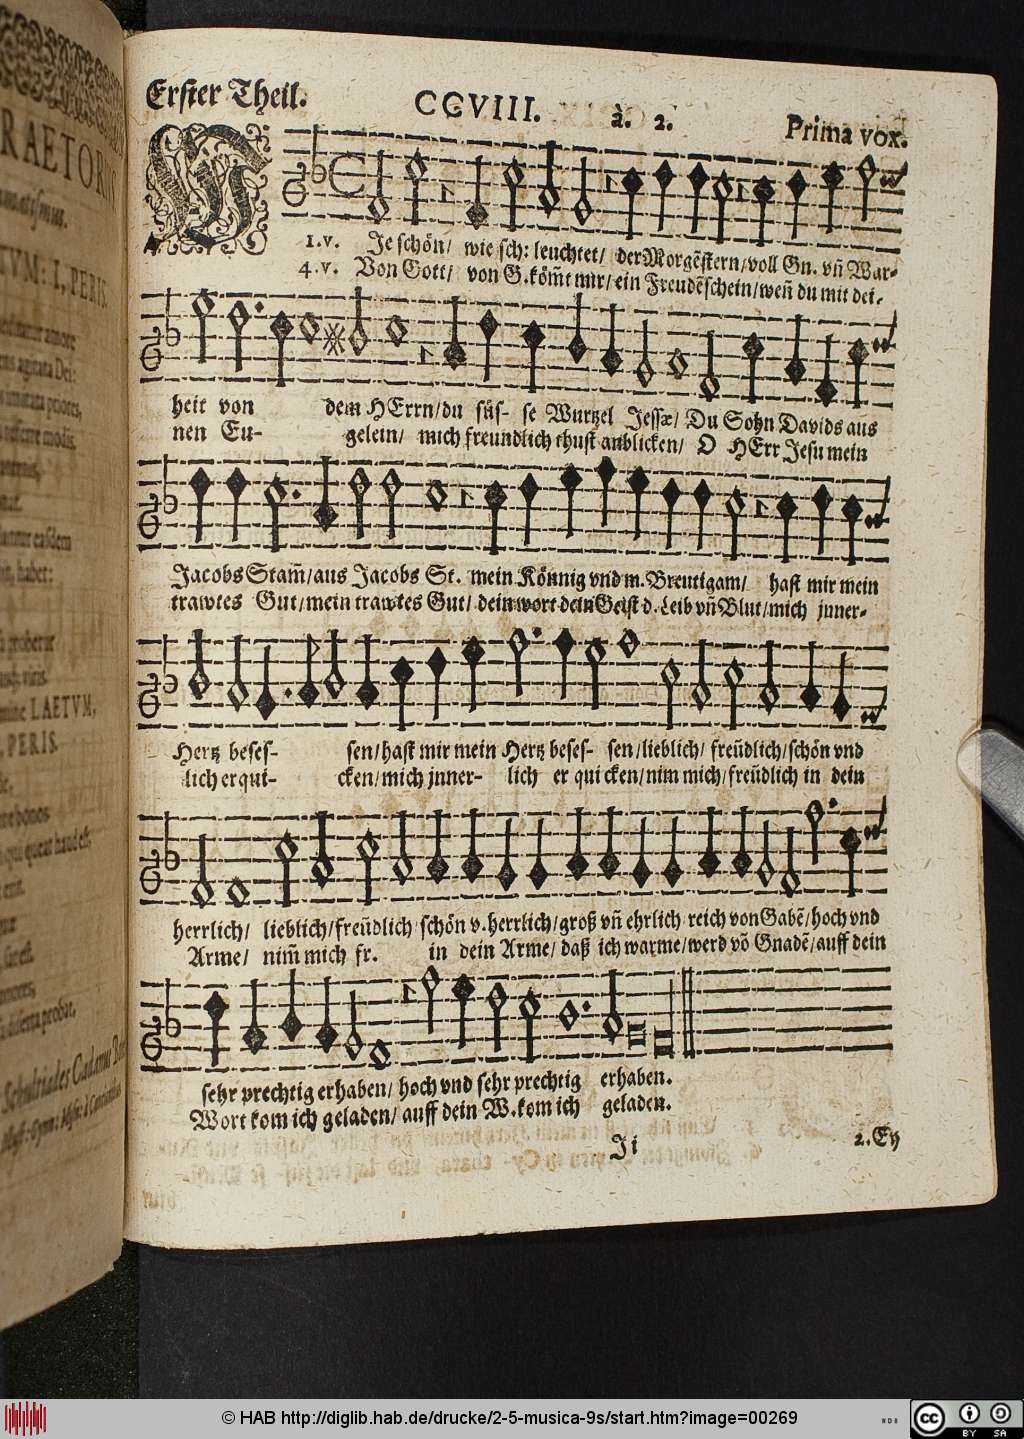 Erster Theil. CCVIII. à. 2. Prima vox.
1.v. WJe schön/ wie sch: leuchtet/ der Morgēstern/voll Gn. vñ War-
4.v. Von Gott/ von G. köm̃t mir/ein Freudēschein/weñ du mit dei-
heit von dem HErrn/du süs- se Wurtzel Jessæ/ Du Sohn Davids aus
nen Eu- gelein/ mich freundlich thust anblicken/ O HErr Jesu mein
Jacobs Stam̃/aus Jacobs St. mein Könnig vnd m. Breutigam/ hast mir mein
trawtes Gut/mein trawtes Gut/ dein wort dein Geist d. Leib vñ Blut/mich jnner-
Hertz beses- sen/hast mir mein Hertz beses- sen/lieblich/ freüdlich/schön vnd
lich erqui- cken/mich jnner- lich er quicken/nim mich/freüdlich in dein
herrlich/ lieblich/freüdlich/schön v.herrlich/groß vñ ehrlich reich von Gabē/hoch vnd
Arme/ nim̃ mich fr. in dein Arme/ daß ich warme/werd vō Gnadē/auff dein
sehr prechtig erhaben/ hoch vnd sehr prechtig erhaben.
Wort kom ich geladen/ auff dein W.kom ich geladen.
Ji 2.Ey
RAETORI
TVM: I, PERIS.
LAETVM,
, PERIS.
© HAB http://diglib.hab.de/drucke/2-5-musica-9s/start.htm?image=00269
cc BY SA